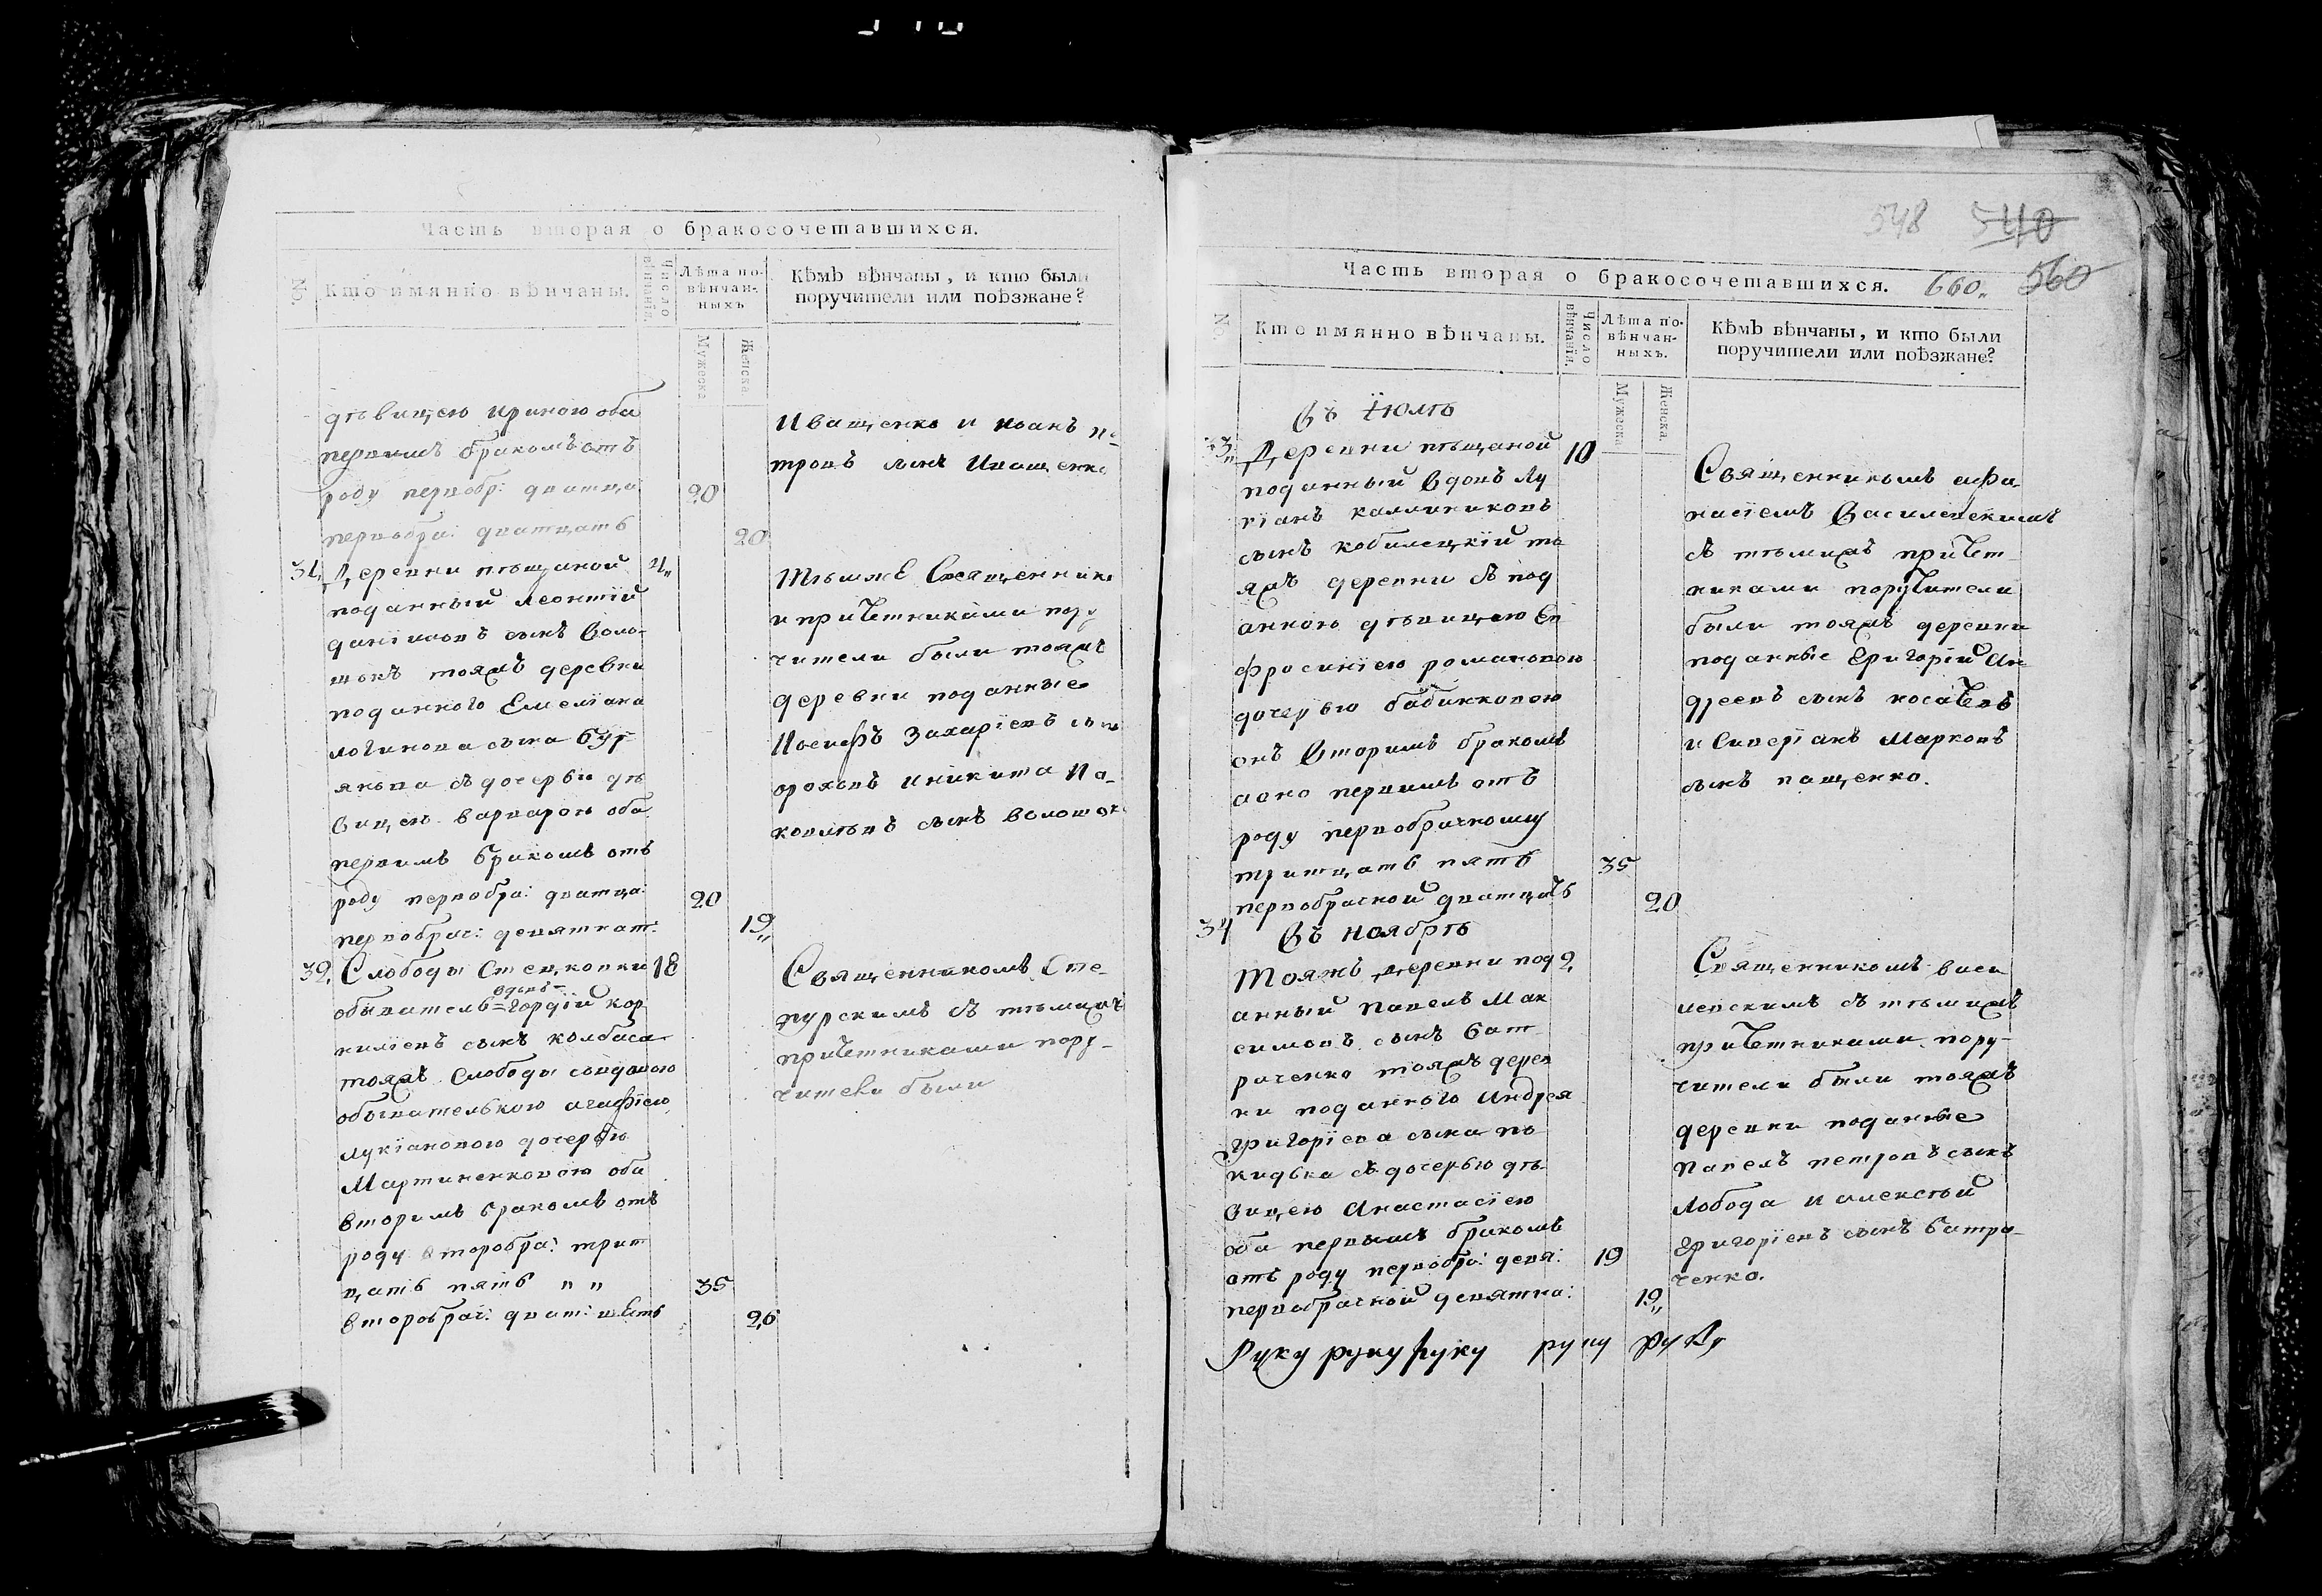 Часть вторая о бракосочетавшихся.
№
Кто имянно вѣнчаны.
Число вѣнчанія.
Лѣта по-
вѣнчан-
ныхъ
Мужеска
Женска
Кѣмъ вѣнчаны, и кто были
поручители или поѣзжане?
дѣвицею Ириною оба
первимъ бракомъ отъ
роду первобр: дватца 20
первобра: дватцать 20
Иващенко и Иоанъ Пе-
тровъ сынъ Иващенко
31, Деревни пѣщаной 4,,
поданный Леонтій
даніиловъ сынъ Воло-
шинъ тояжъ деревни
поданного Емеліана
логинова сына Бур-
якова съ дочерью дѣ
вицею варварою оба
первимъ бракомъ отъ
роду первобра: дватца: 20
первобрач: девятнат: 19,,
Тѣмже Священником
и причетниками пору
чители были тояжъ
деревни поданные
Иосифъ Захаріевъ сын
ороховъ и никита Па-
32, Слободы Стецковки 18
вдовъ
обыватель Гордій кор
ниліевъ сынъ колбаса
тояжъ Слободы совдовою
обывателькою агафіею
лукіановою дочерью
Мартиненковою оба
вторимъ бракомъ отъ
роду второбра: трит
цать пять " " 35
второбрач: дват: шесть 26
Священникомъ Сте-
пурскимъ съ тѣмижъ
причетниками пору-
чители были
548 540
Часть вторая о бракосочетавшихся. 660,, 560
№
Кто имянно вѣнчаны.
Число вѣнчанія.
Лѣта по-
вѣнчан-
ныхъ.
Мужеска
Женска.
Кѣмъ вѣнчаны, и кто были
поручители или поѣзжане?
Въ Іюлѣ
33,, Деревни пѣщаной 10
поданный вдовъ Лу
кіанъ каллиниковъ
сынъ кобилецкій то
яжъ деревни съ под
анною дѣвицею Ев
фросиніею романовою
дочерью бабинковою
онъ Вторимъ бракомъ
аона первимъ отъ
роду первобрачному
тритцать пять 35
первобрачной дватцать 20
Священникомъ афа-
насіемъ Василевскимъ
съ тѣмижъ причет
никами поручители
были тояжъ деревни
поданные Григорій Ан
дреевъ сынъ косачевъ
и Сивергіанъ Марковъ
сынъ пащенко.
34 Въ Ноябрѣ
Тояжъ деревни под 2,
анный Павелъ Мак
симовъ сынъ Бат
раченко тояжъ дерев
ни поданного Андрея
григоріева сына по
кидька съ дочерью дѣ-
вицею Анастасіею
оба первымъ бракомъ
отъ роду первобра: девя: 19
первобрачной девятна: 19,,
Священникомъ васи
левскимъ съ тѣмижъ
причетниками пору-
чители были тояжъ
деревни поданные
Павелъ петровъ сынъ
Лобода и алексѣй
Григоріевъ сынъ батра-
ченко.
Руку руку руку руку руку